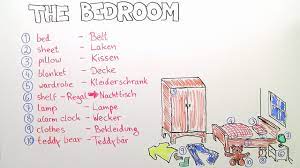 THE BEDROOM
① bed - Bett
② sheet - Laken
③ pillow - Kissen
④ blanket - Decke
⑤ wardrobe - Kleiderschrank
⑥ shelf - Regal → Nachttisch
⑦ lamp - Lampe
⑧ alarm clock - Wecker
⑨ clothes - Bekleidung
⑩ teddy bear - Teddybär